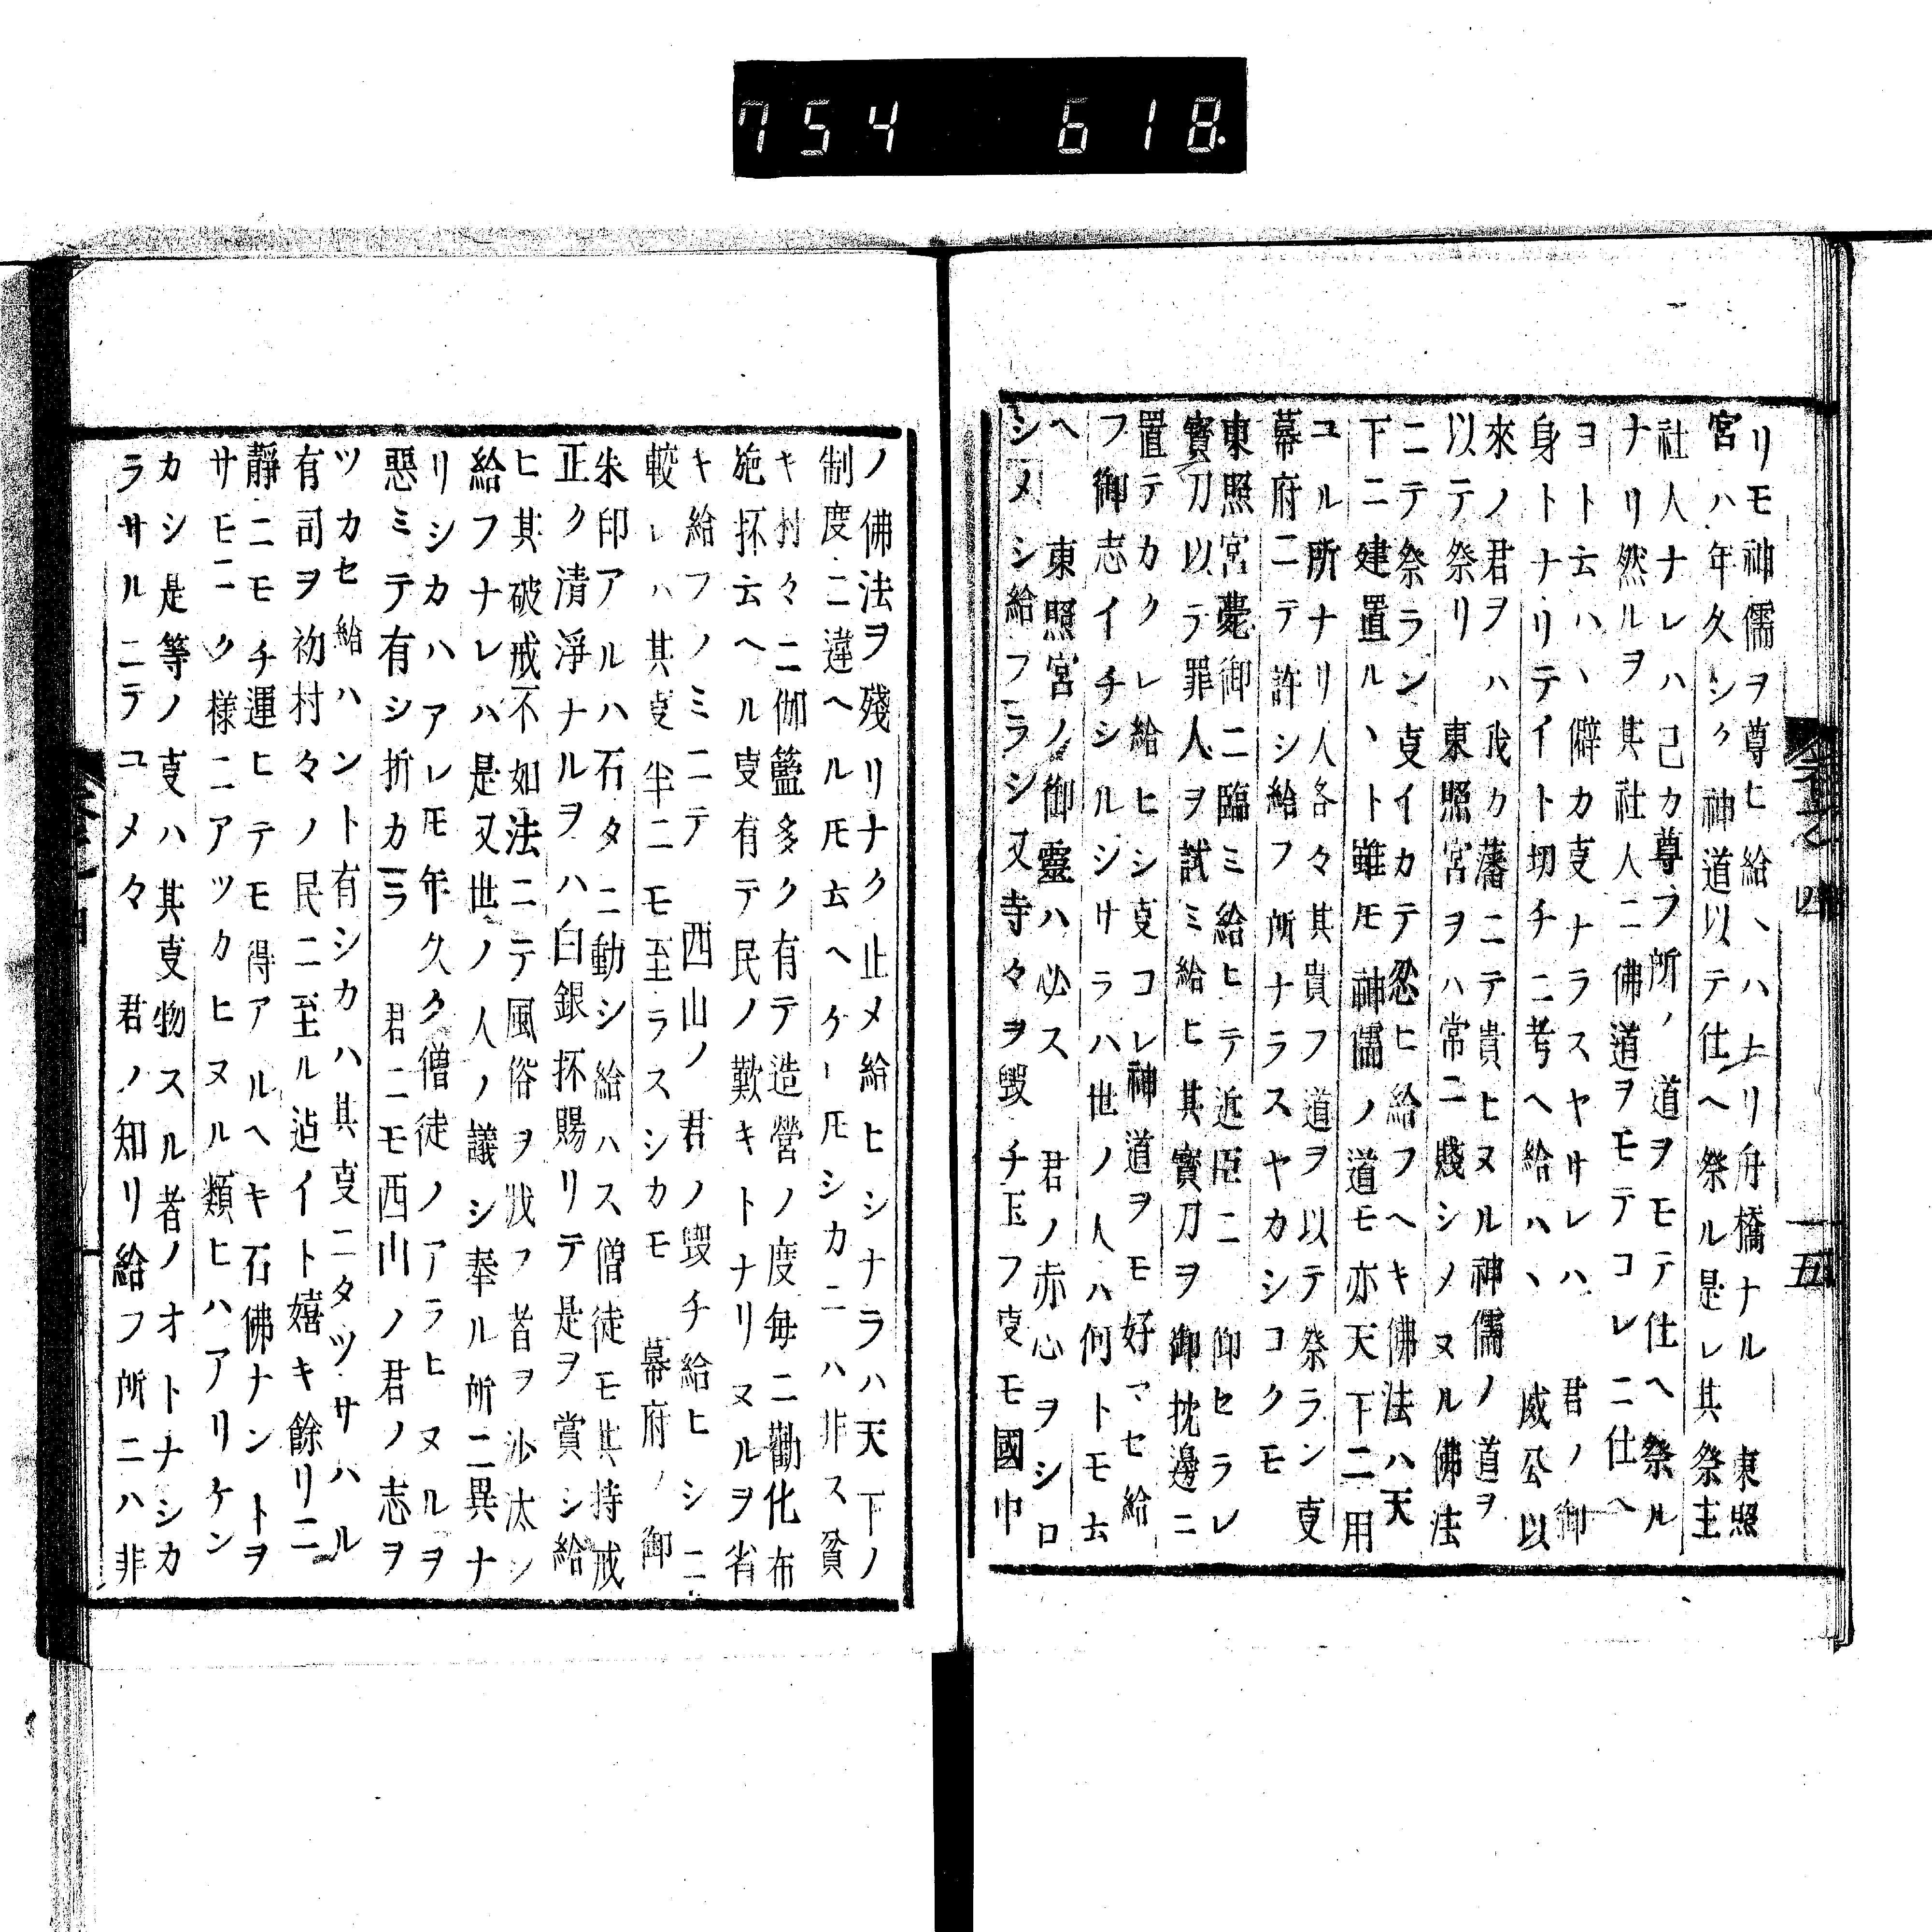 754 618.
リモ神儒ヲ尊ヒ給ヽハナリ舟橋ナル　東照
宮ハ年久シク神道以テ仕ヘ祭ル是レ其祭主
社人ナレハ己カ尊フ所ノ道ヲモテ仕ヘ祭ル
ナリ然ルヲ其社人ニ佛道ヲモテコレニ仕ヘ
ヨト云ハヽ僻カ叓ナラスヤサレハ　君ノ御
身トナリテイト切チニ考ヘ給ハヽ　威公以
來ノ君ヲハ我カ藩ニテ貴ヒヌル神儒ノ道ヲ
以テ祭リ　東照宮ヲハ常ニ賤シメヌル佛法
ニテ祭ラン叓イカテ忍ヒ給フヘキ佛法ハ天
下ニ建置ルヽト雖𪜈神儒ノ道モ亦天下ニ用
ユル所ナリ人各々其貴フ道ヲ以テ祭ラン叓
幕府ニテ許シ給フ所ナラスヤカシコクモ
東照宮薨御ニ臨ミ給ヒテ近臣ニ　仰セラレ
寳刀以テ罪人ヲ試ミ給ヒ其寳刀ヲ御枕邊ニ
置テカクレ給ヒシ叓コレ神道ヲモ好マセ給
フ御志イチシルシサラハ世ノ人ハ何トモ云
ヘ　東照宮ノ御靈ハ必ス　君ノ赤心ヲシロ
シメシ給フラシ又寺々ヲ毀チ玉フ叓モ國中
四
五
ノ佛法ヲ殘リナク止メ給ヒシナラハ天下ノ
制度ニ違ヘル𪜈云ヘケー𪜈シカニハ非ス貧
キ村々ニ伽籃多ク有テ造營ノ度毎ニ勸化布
施抔云ヘル叓有テ民ノ歎キトナリヌルヲ省
キ給フノミニテ　西山ノ　君ノ毀チ給ヒシニ
較レハ其叓半ニモ至ラスシカモ　幕府ノ御
朱印アルハ石タニ動シ給ハス僧徒モ其持戒
正ク清淨ナルヲハ白銀抔賜リテ是ヲ賞シ給
ヒ其破戒不如法ニテ風俗ヲ戕フ者ヲ沙汰シ
給フナレハ是又世ノ人ノ議シ奉ル所ニ異ナ
リシカハアレ𪜈年久ク僧徒ノアラヒヌルヲ
惡ミテ有シ折カラ　君ニモ西山ノ君ノ志ヲ
ツカセ給ハント有シカハ其叓ニタツサハル
有司ヲ初村々ノ民ニ至ル迠イト嬉キ餘リニ
靜ニモチ運ヒテモ得アルヘキ石佛ナントヲ
サモニーク様ニアツカヒヌル類ヒハアリケン
カシ是等ノ叓ハ其叓物スル者ノオトナシカ
ラサルニテユメ々　君ノ知リ給フ所ニハ非